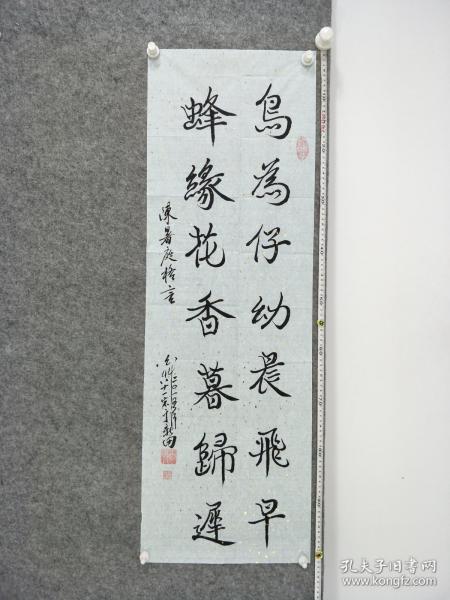 鳥為仔幼晨飛早
蜂緣花香暮歸遲
陳暑庭格言
孔夫子旧书网
www.kongfz.com